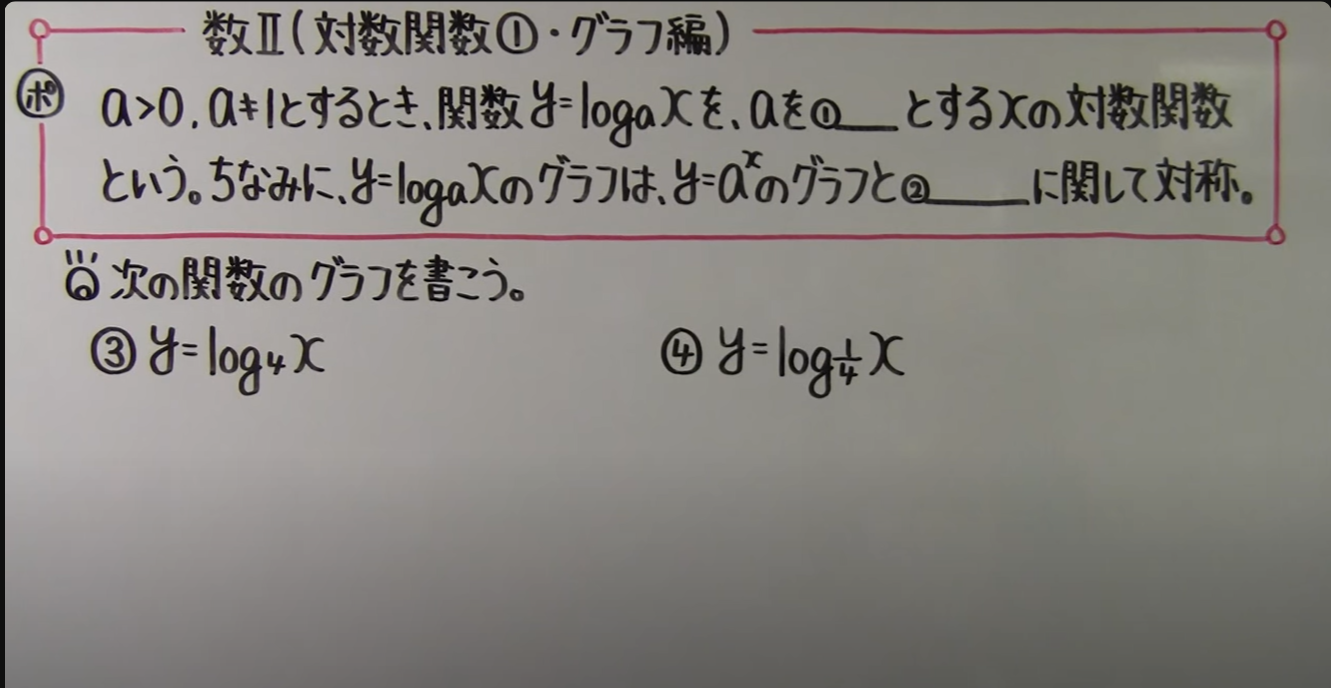 数Ⅱ(対数関数①・グラフ編)
ポ a>0, a≠1とするとき、関数 y=logₐxを、aを①___とするxの対数関数
という。ちなみに、y=logₐxのグラフは、y=aˣのグラフと②_____に関して対称。
次の関数のグラフを書こう。
③ y=log₄x ④ y=log_{1/4}x